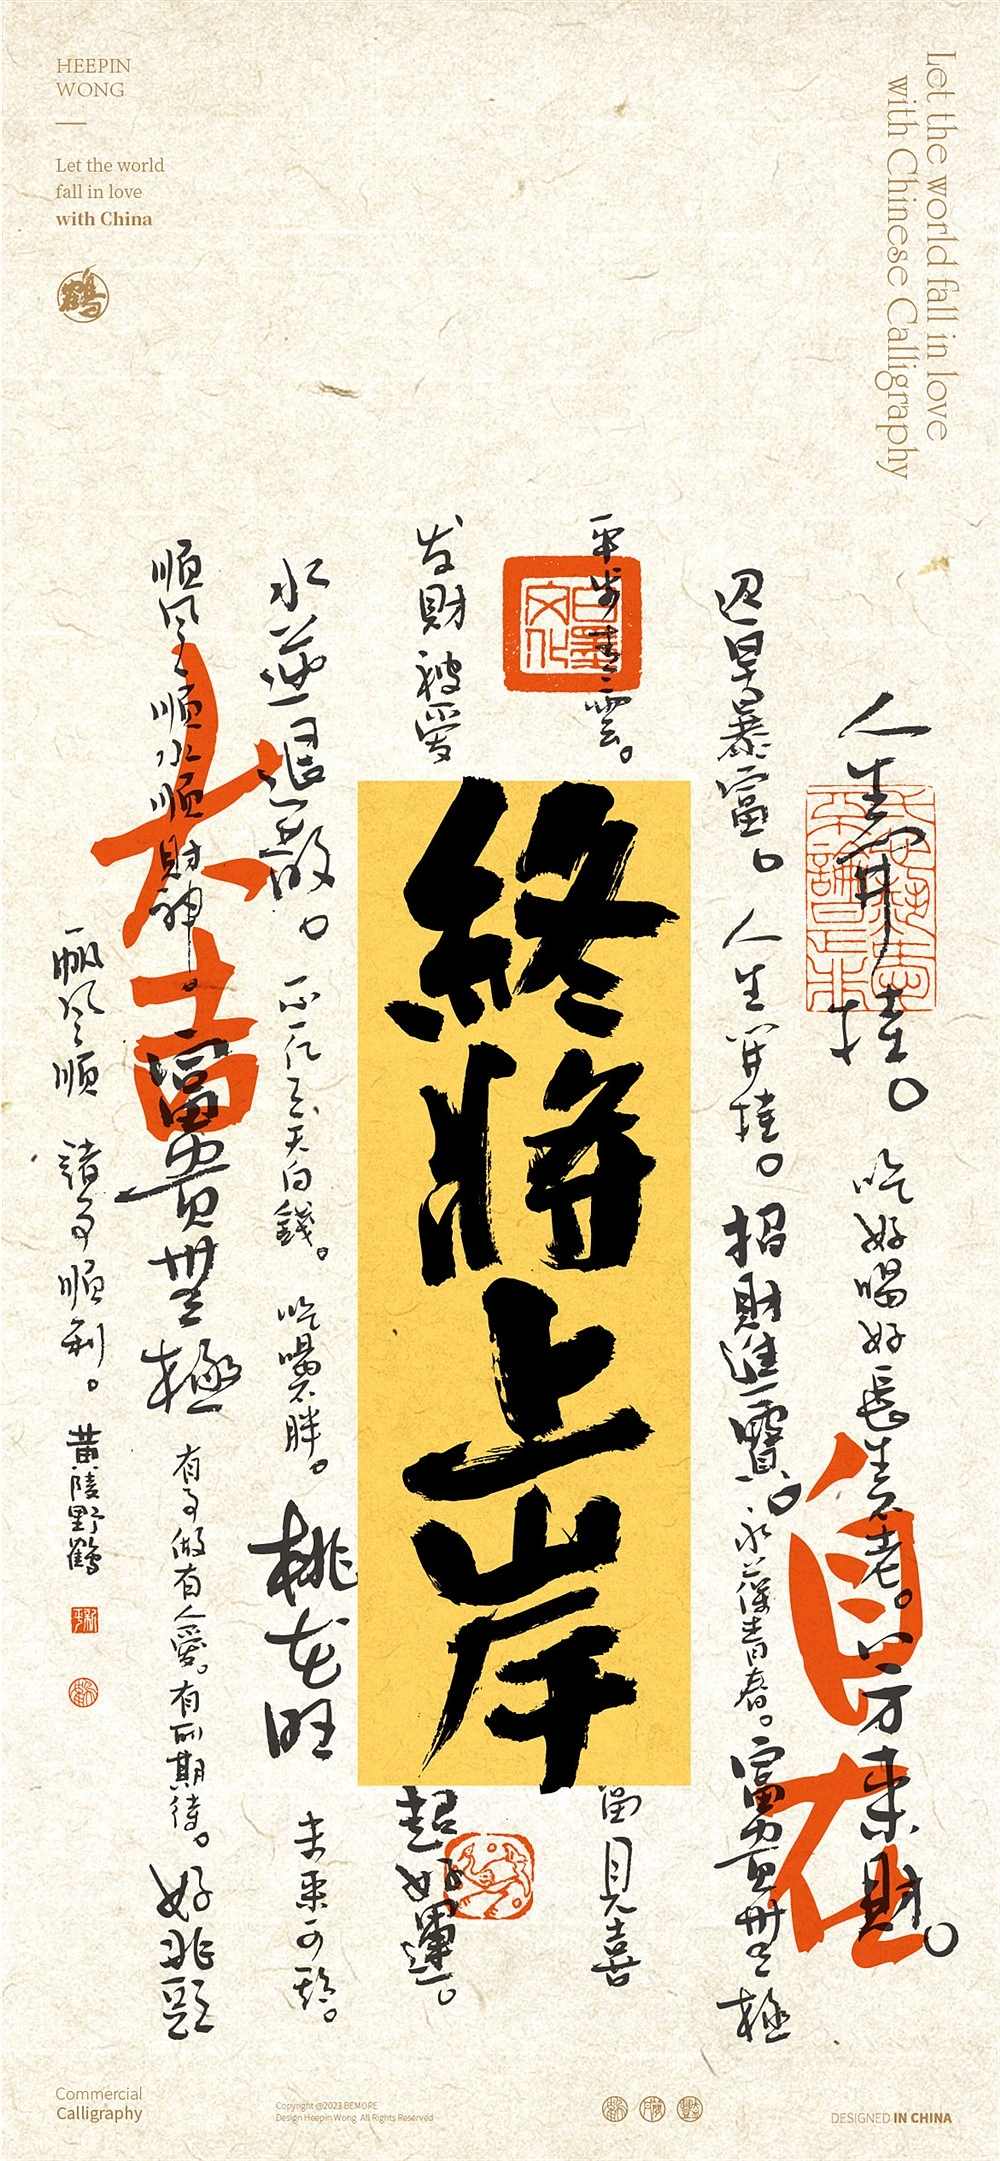 HEEPIN
WONG
Let the world
fall in love
with China
鶴
Let the world fall in love
with Chinese Calligraphy
人生開掛。
吃好喝好長生不老。八方来財。
迟早暴富。人生開掛。招財進寶。永葆青春。富貴無極
平步青雲。
見喜
白墨
文化
終將上岸
发財被愛
超好運。
水逆退散。
不止三天白錢。
吃喝不胖。
桃花旺
未来可期。
順風順水順財神。富貴無極
有事做有人愛。有所期待。好兆頭
帆風順 諸事順利。
黄陵野鶴
大吉
自在
Commercial
Calligraphy
Copyright @2023 BEMORE
Design Heepin Wong All Rights Reserved
DESIGNED IN CHINA